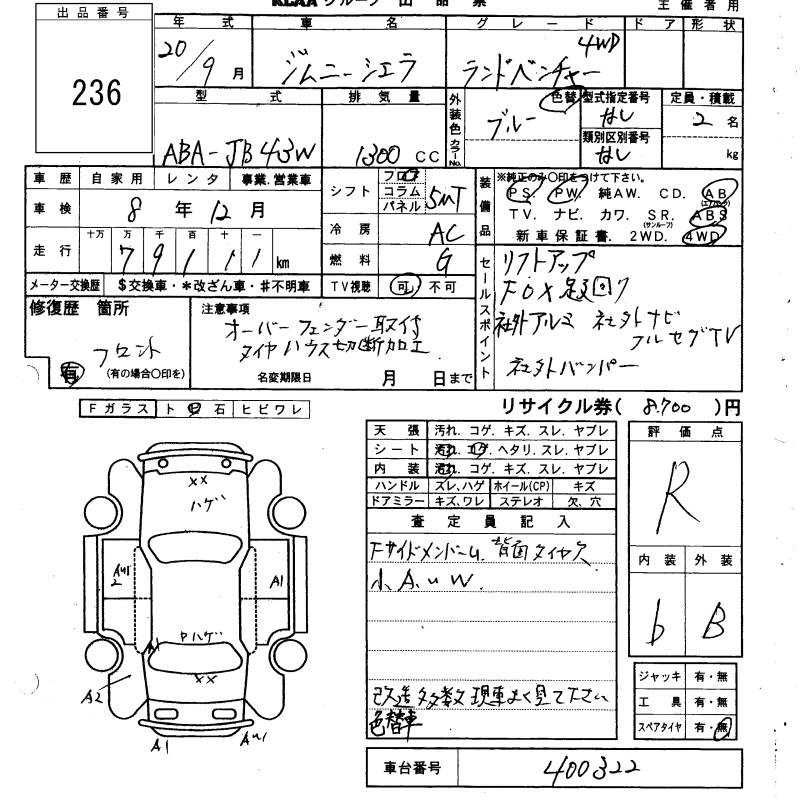 KCAA グループ 出 品 票
主 催 者 用
出品番号
236
年 式
20/9月
車 名
ジムニーシエラ
グレード
4WD
ランドベンチャー
ドア 形状
型 式
ABA-JB43W
排気量
1300 CC
外装色
カラーNo.
色替
ブルー
型式指定番号
なし
類別区別番号
なし
定員・積載
2 名
kg
車歴 自家用 レンタ 事業.営業車
車検 8 年 12 月
走行 十万 万 千 百 十 一
7 9 1 1 1 km
メーター交換歴 $交換車・*改ざん車・#不明車
シフト フロア コラム パネル 5MT
冷房 AC
燃料 G
TV視聴 可 不可
装備品
※純正のみ○印をつけて下さい。
PS. PW. 純AW. CD. AB (エアバック)
TV. ナビ. カワ. SR. (サンルーフ) ABS
新車保証書. 2WD. 4WD
セールスポイント
リフトアップ
FOX足回り
社外アルミ 社外ナビ
フルセグTV
社外バンパー
修復歴 箇所
フロント
有 (有の場合○印を)
注意事項
オーバーフェンダー取付
タイヤハウス切断加工
名変期限日 月 日まで
リサイクル券( 8,700 )円
Fガラス ト ビ 石 ヒビワレ
天張 汚れ. コゲ. キズ. スレ. ヤブレ
シート 汚れ. コゲ. ヘタリ. スレ. ヤブレ
内装 汚れ. コゲ. キズ. スレ. ヤブレ
ハンドル ズレ、ハゲ ホイール(CP) キズ
ドアミラー キズ、ワレ ステレオ 欠、穴
査定員記入
Fサイドメンバーム. 背面タイヤ欠
小A.U.W.
改造多数 現車よく見て下さい
色替車
評価点
R
内装 外装
b B
ジャッキ 有・無
工具 有・無
スペアタイヤ 有・無
車台番号 400322
××
ハゲ
AU1
2
A1
A1
ヤハゲ
××
A2
A1
AU1